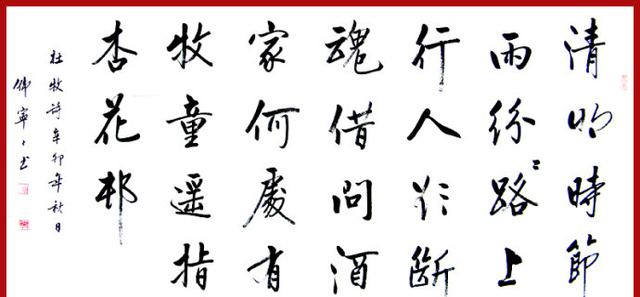 清明時節
雨紛〻路上
行人欲斷
魂借問酒
家何處有
牧童遥指
杏花邨
杜牧诗辛卯年秋日